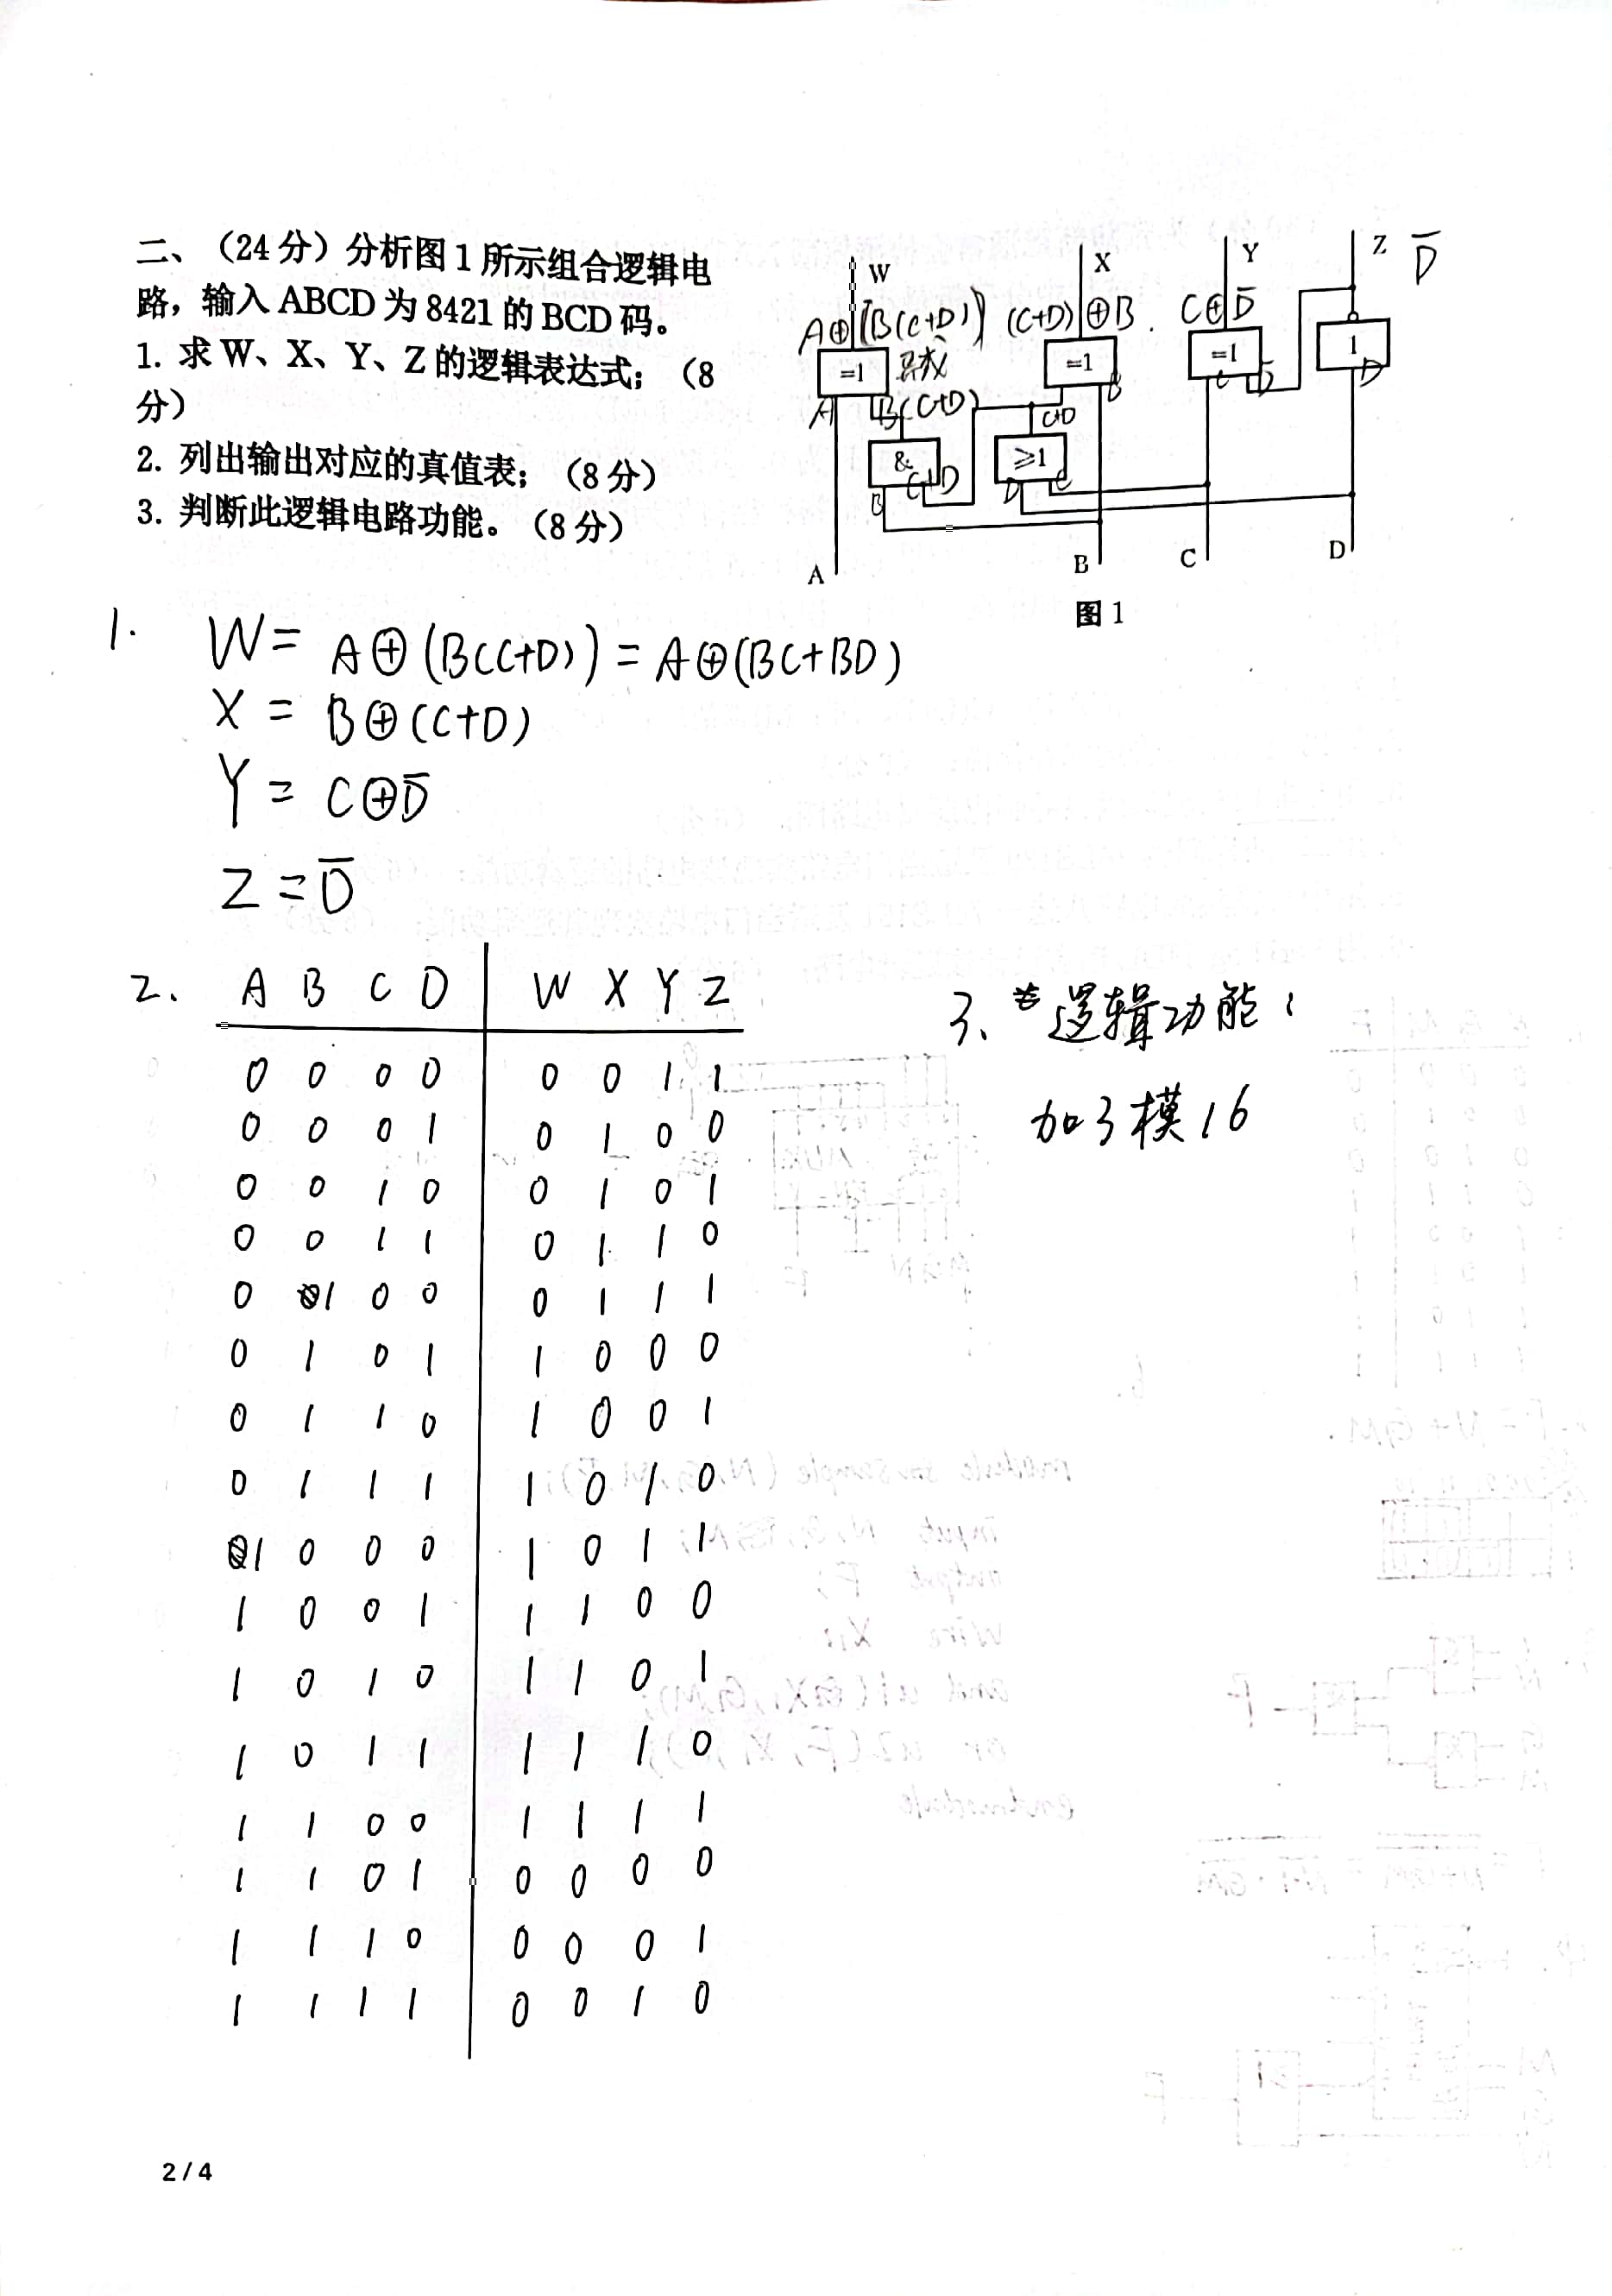 二、（24分）分析图1所示组合逻辑电
路，输入ABCD为8421的BCD码。
1. 求W、X、Y、Z的逻辑表达式；（8
分）
2. 列出输出对应的真值表；（8分）
3. 判断此逻辑电路功能。（8分）
W X Y Z D̅
A⊕(B(C+D)) (C+D)⊕B. C⊕D̅
=1 =1 =1 1
A B(C+D) B C D̅ D
C+D
& ≥1
B C+D D C
A B C D
图1
1. W = A⊕(B(C+D)) = A⊕(BC+BD)
X = B⊕(C+D)
Y = C⊕D̅
Z = D̅
2. A B C D W X Y Z
0 0 0 0 0 0 1 1
0 0 0 1 0 1 0 0
0 0 1 0 0 1 0 1
0 0 1 1 0 1 1 0
0 1 0 0 0 1 1 1
0 1 0 1 1 0 0 0
0 1 1 0 1 0 0 1
0 1 1 1 1 0 1 0
1 0 0 0 1 0 1 1
1 0 0 1 1 1 0 0
1 0 1 0 1 1 0 1
1 0 1 1 1 1 1 0
1 1 0 0 1 1 1 1
1 1 0 1 0 0 0 0
1 1 1 0 0 0 0 1
1 1 1 1 0 0 1 0
3、逻辑功能：
加3模16
2 / 4